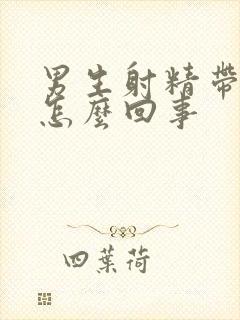 男生射精帶
怎麼回事
四葉荷